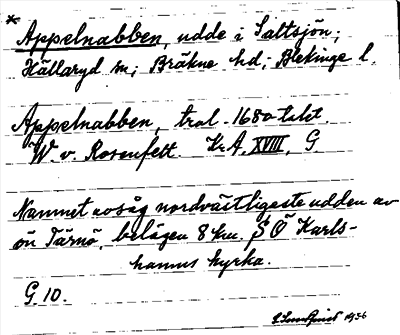 * Appelnabben, udde i Saltsjön;
Hällaryd sn; Bräkne hd; Blekinge l.
Appelnabben, trol. 1680-talet.
W. v. Rosenfelt KrA, XVIII, G
Namnet avsåg nordvästligaste udden av
ön Tärnö, belägen 8 km. SÖ Karls-
hamns kyrka.
G. 10.
1936